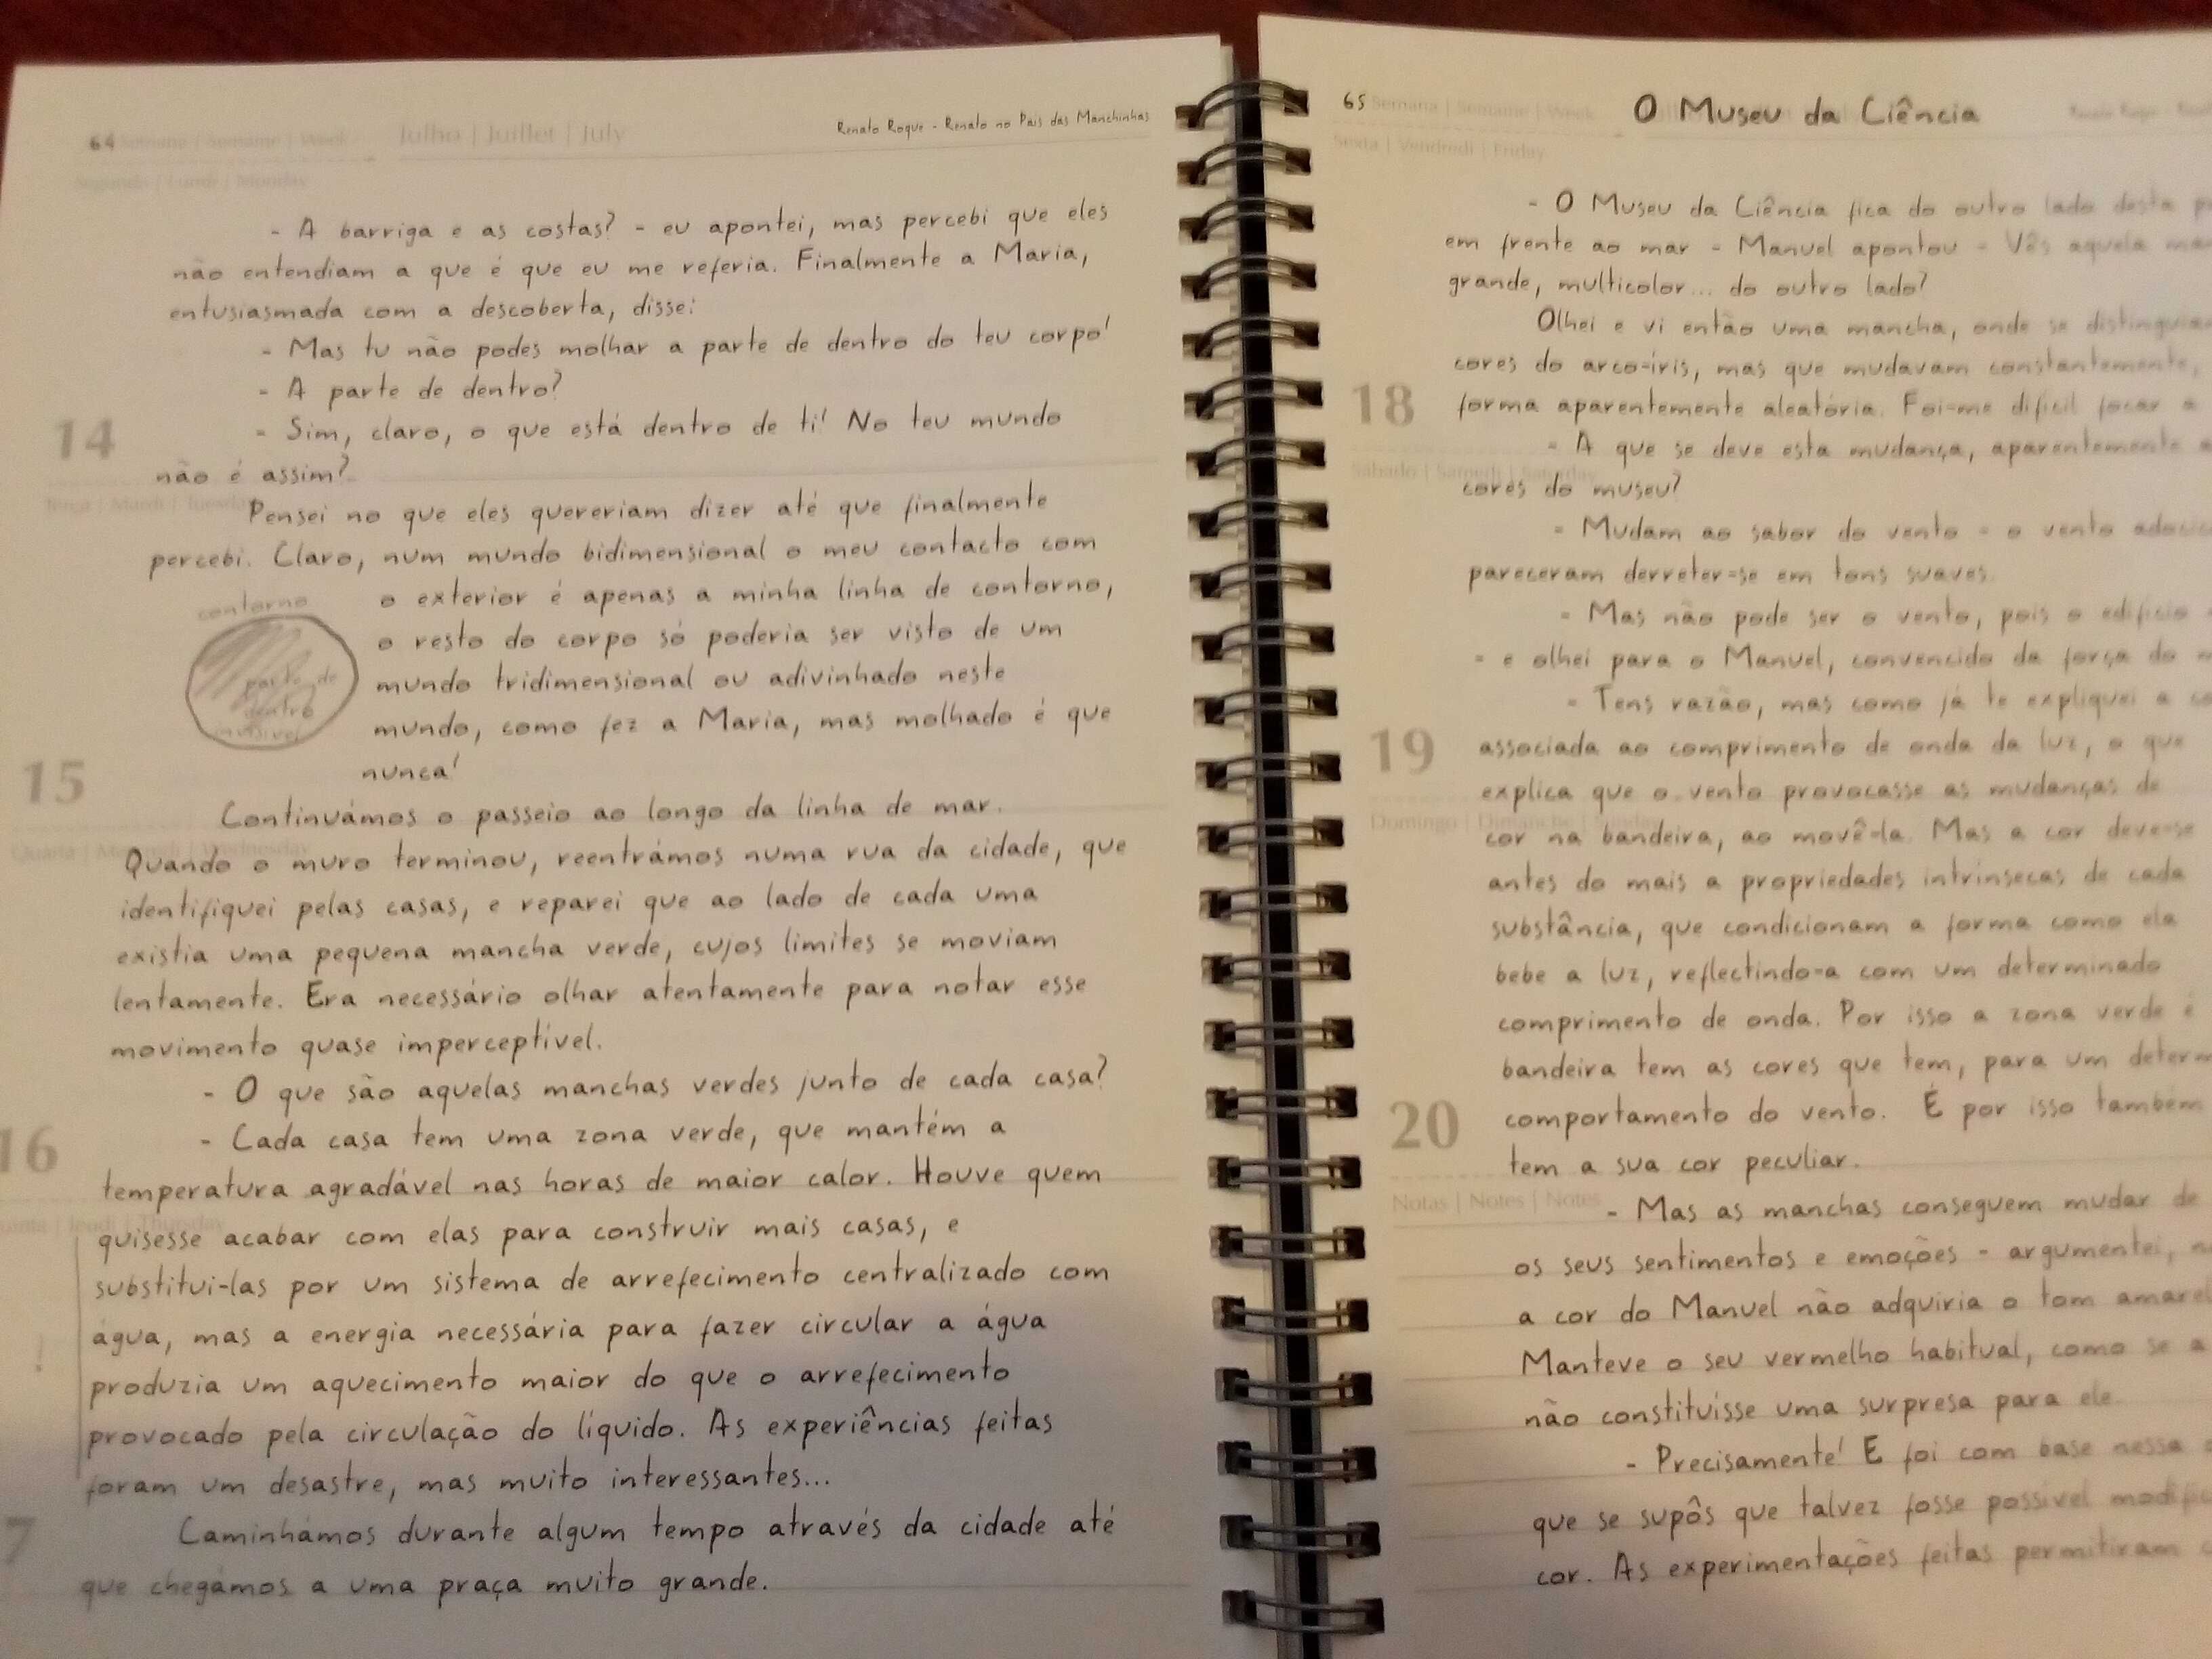 64 Semana | Semaine | Week
Julho | Juillet | July
Renato Roque - Renato no País das Manchinhas
Segunda | Lundi | Monday
- A barriga e as costas? - eu apontei, mas percebi que eles
não entendiam a que é que eu me referia. Finalmente a Maria,
entusiasmada com a descoberta, disse:
- Mas tu não podes molhar a parte de dentro do teu corpo!
- A parte de dentro?
14
- Sim, claro, o que está dentro de ti! No teu mundo
não é assim?
Terça | Mardi | Tuesday
Pensei no que eles quereriam dizer até que finalmente
percebi. Claro, num mundo bidimensional o meu contacto com
contorno
o exterior é apenas a minha linha de contorno,
o resto do corpo só poderia ser visto de um
parte de
dentro
invisível
mundo tridimensional ou adivinhado neste
mundo, como fez a Maria, mas molhado é que
15
nunca!
Continuámos o passeio ao longo da linha de mar.
Quarta | Mercredi | Wednesday
Quando o muro terminou, reentrámos numa rua da cidade, que
identifiquei pelas casas, e reparei que ao lado de cada uma
existia uma pequena mancha verde, cujos limites se moviam
lentamente. Era necessário olhar atentamente para notar esse
movimento quase imperceptível.
- O que são aquelas manchas verdes junto de cada casa?
16
- Cada casa tem uma zona verde, que mantém a
temperatura agradável nas horas de maior calor. Houve quem
Quinta | Jeudi | Thursday
quisesse acabar com elas para construir mais casas, e
substitui-las por um sistema de arrefecimento centralizado com
! água, mas a energia necessária para fazer circular a água
produzia um aquecimento maior do que o arrefecimento
provocado pela circulação do líquido. As experiências feitas
foram um desastre, mas muito interessantes...
7
Caminhámos durante algum tempo através da cidade até
que chegámos a uma praça muito grande.
65 Semana | Semaine | Week
O Museu da Ciência
Sexta | Vendredi | Friday
- O Museu da Ciência fica do outro lado desta
em frente ao mar - Manuel apontou - Vês aquela
grande, multicolor... do outro lado?
Olhei e vi então uma mancha, onde se distinguiam
cores do arco-íris, mas que mudavam constantemente,
18
forma aparentemente aleatória. Foi-me difícil focar a
- A que se deve esta mudança, aparentemente
Sábado | Samedi | Saturday
cores do museu?
- Mudam ao sabor do vento - o vento
pareceram derreter-se em tons suaves.
- Mas não pode ser o vento, pois o edifício
- e olhei para o Manuel, convencido da força do
- Tens razão, mas como já te expliquei a
19
associada ao comprimento de onda da luz, o que
explica que o vento provocasse as mudanças de
Domingo | Dimanche | Sunday
cor na bandeira, ao movê-la. Mas a cor deve-se
antes do mais a propriedades intrínsecas de cada
substância, que condicionam a forma como ela
bebe a luz, reflectindo-a com um determinado
comprimento de onda. Por isso a zona verde é
bandeira tem as cores que tem, para um
20
comportamento do vento. É por isso também
tem a sua cor peculiar.
Notas | Notes | Notes
- Mas as manchas conseguem mudar de
os seus sentimentos e emoções - argumentei,
a cor do Manuel não adquiria o tom
Manteve o seu vermelho habitual, como se a
não constituísse uma surpresa para ele.
- Precisamente! E foi com base nessa
que se supôs que talvez fosse possível
cor. As experimentações feitas permitiram